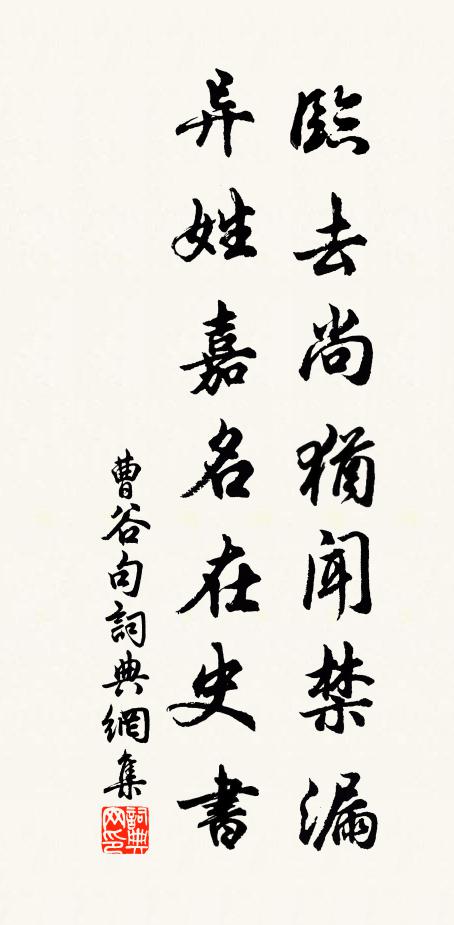 臨去尚猶聞禁漏
异姓嘉名在史書
曹谷句詞典網集
詞典网印